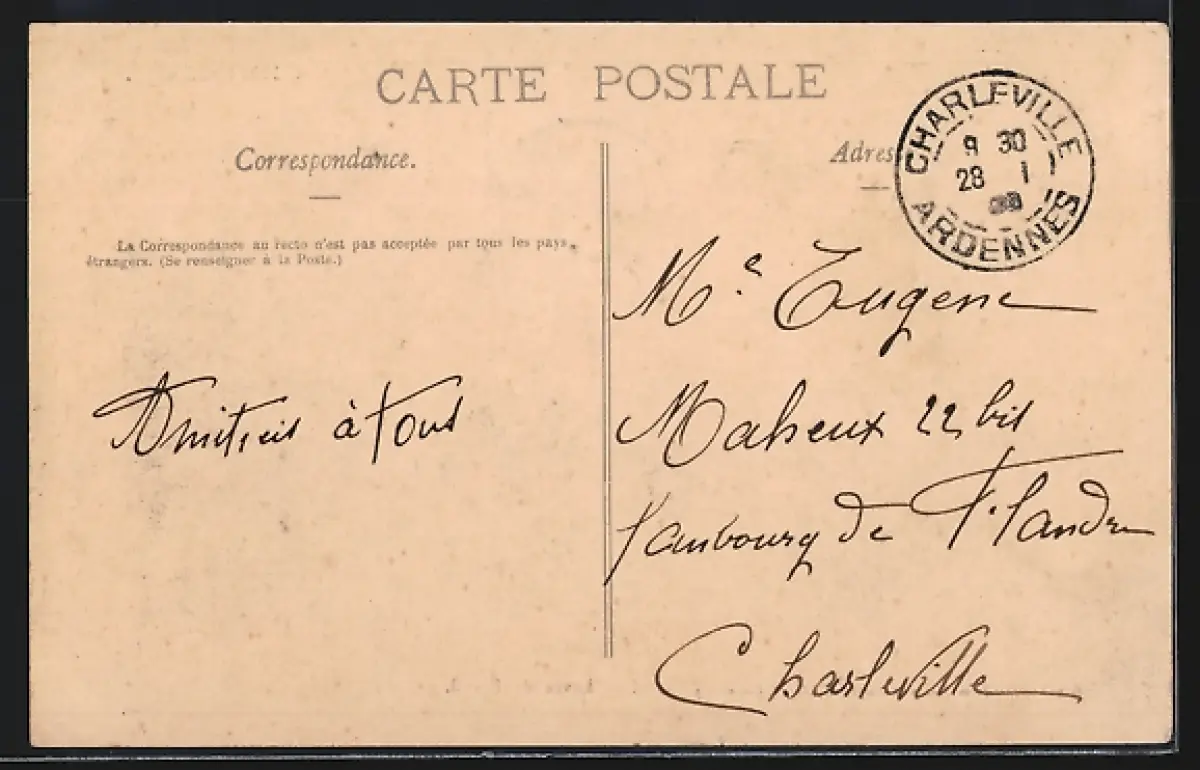 CARTE POSTALE
Correspondance.
La Correspondance au recto n'est pas acceptée par tous les pays
étrangers. (Se renseigner à la Poste.)
Amitiés à tous
Adres
CHARLEVILLE
9 30
28 1
ARDENNES
Me Eugene
Maheux 22 bis
faubourg de Flandre
Charleville